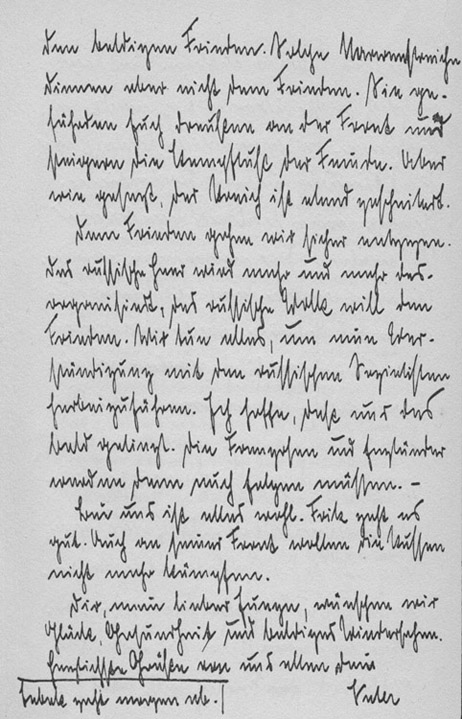 den baldigen Frieden. Solche Narrenstreiche
dienen aber nicht dem Frieden. Sie ge-
fährden Euch draußen an der Front und
steigern die Kampflust der Feinde. Aber
wie gesagt, der ist elend gescheitert.
Dem Frieden gehen wir sicher entgegen.
Das russische Heer wird mehr und mehr des-
organisiert, das russische Volk will den
Frieden. Wir tun alles, um eine Ver-
ständigung mit den russischen Sozialisten
herbeizuführen. Ich hoffe, daß uns das
bald gelingt. Die Franzosen und Engländer
werden dann auch folgen müssen. –
Bei uns ist alles wohl. Fritz geht es
gut. Auch an seiner Front wollen die Russen
nicht mehr kämpfen.
Dir, mein lieber Junge, wünschen wir
Glück, Gesundheit und baldiges Wiedersehen.
Herzlichste Grüße von uns allen Dein
geht morgen ab. Vater